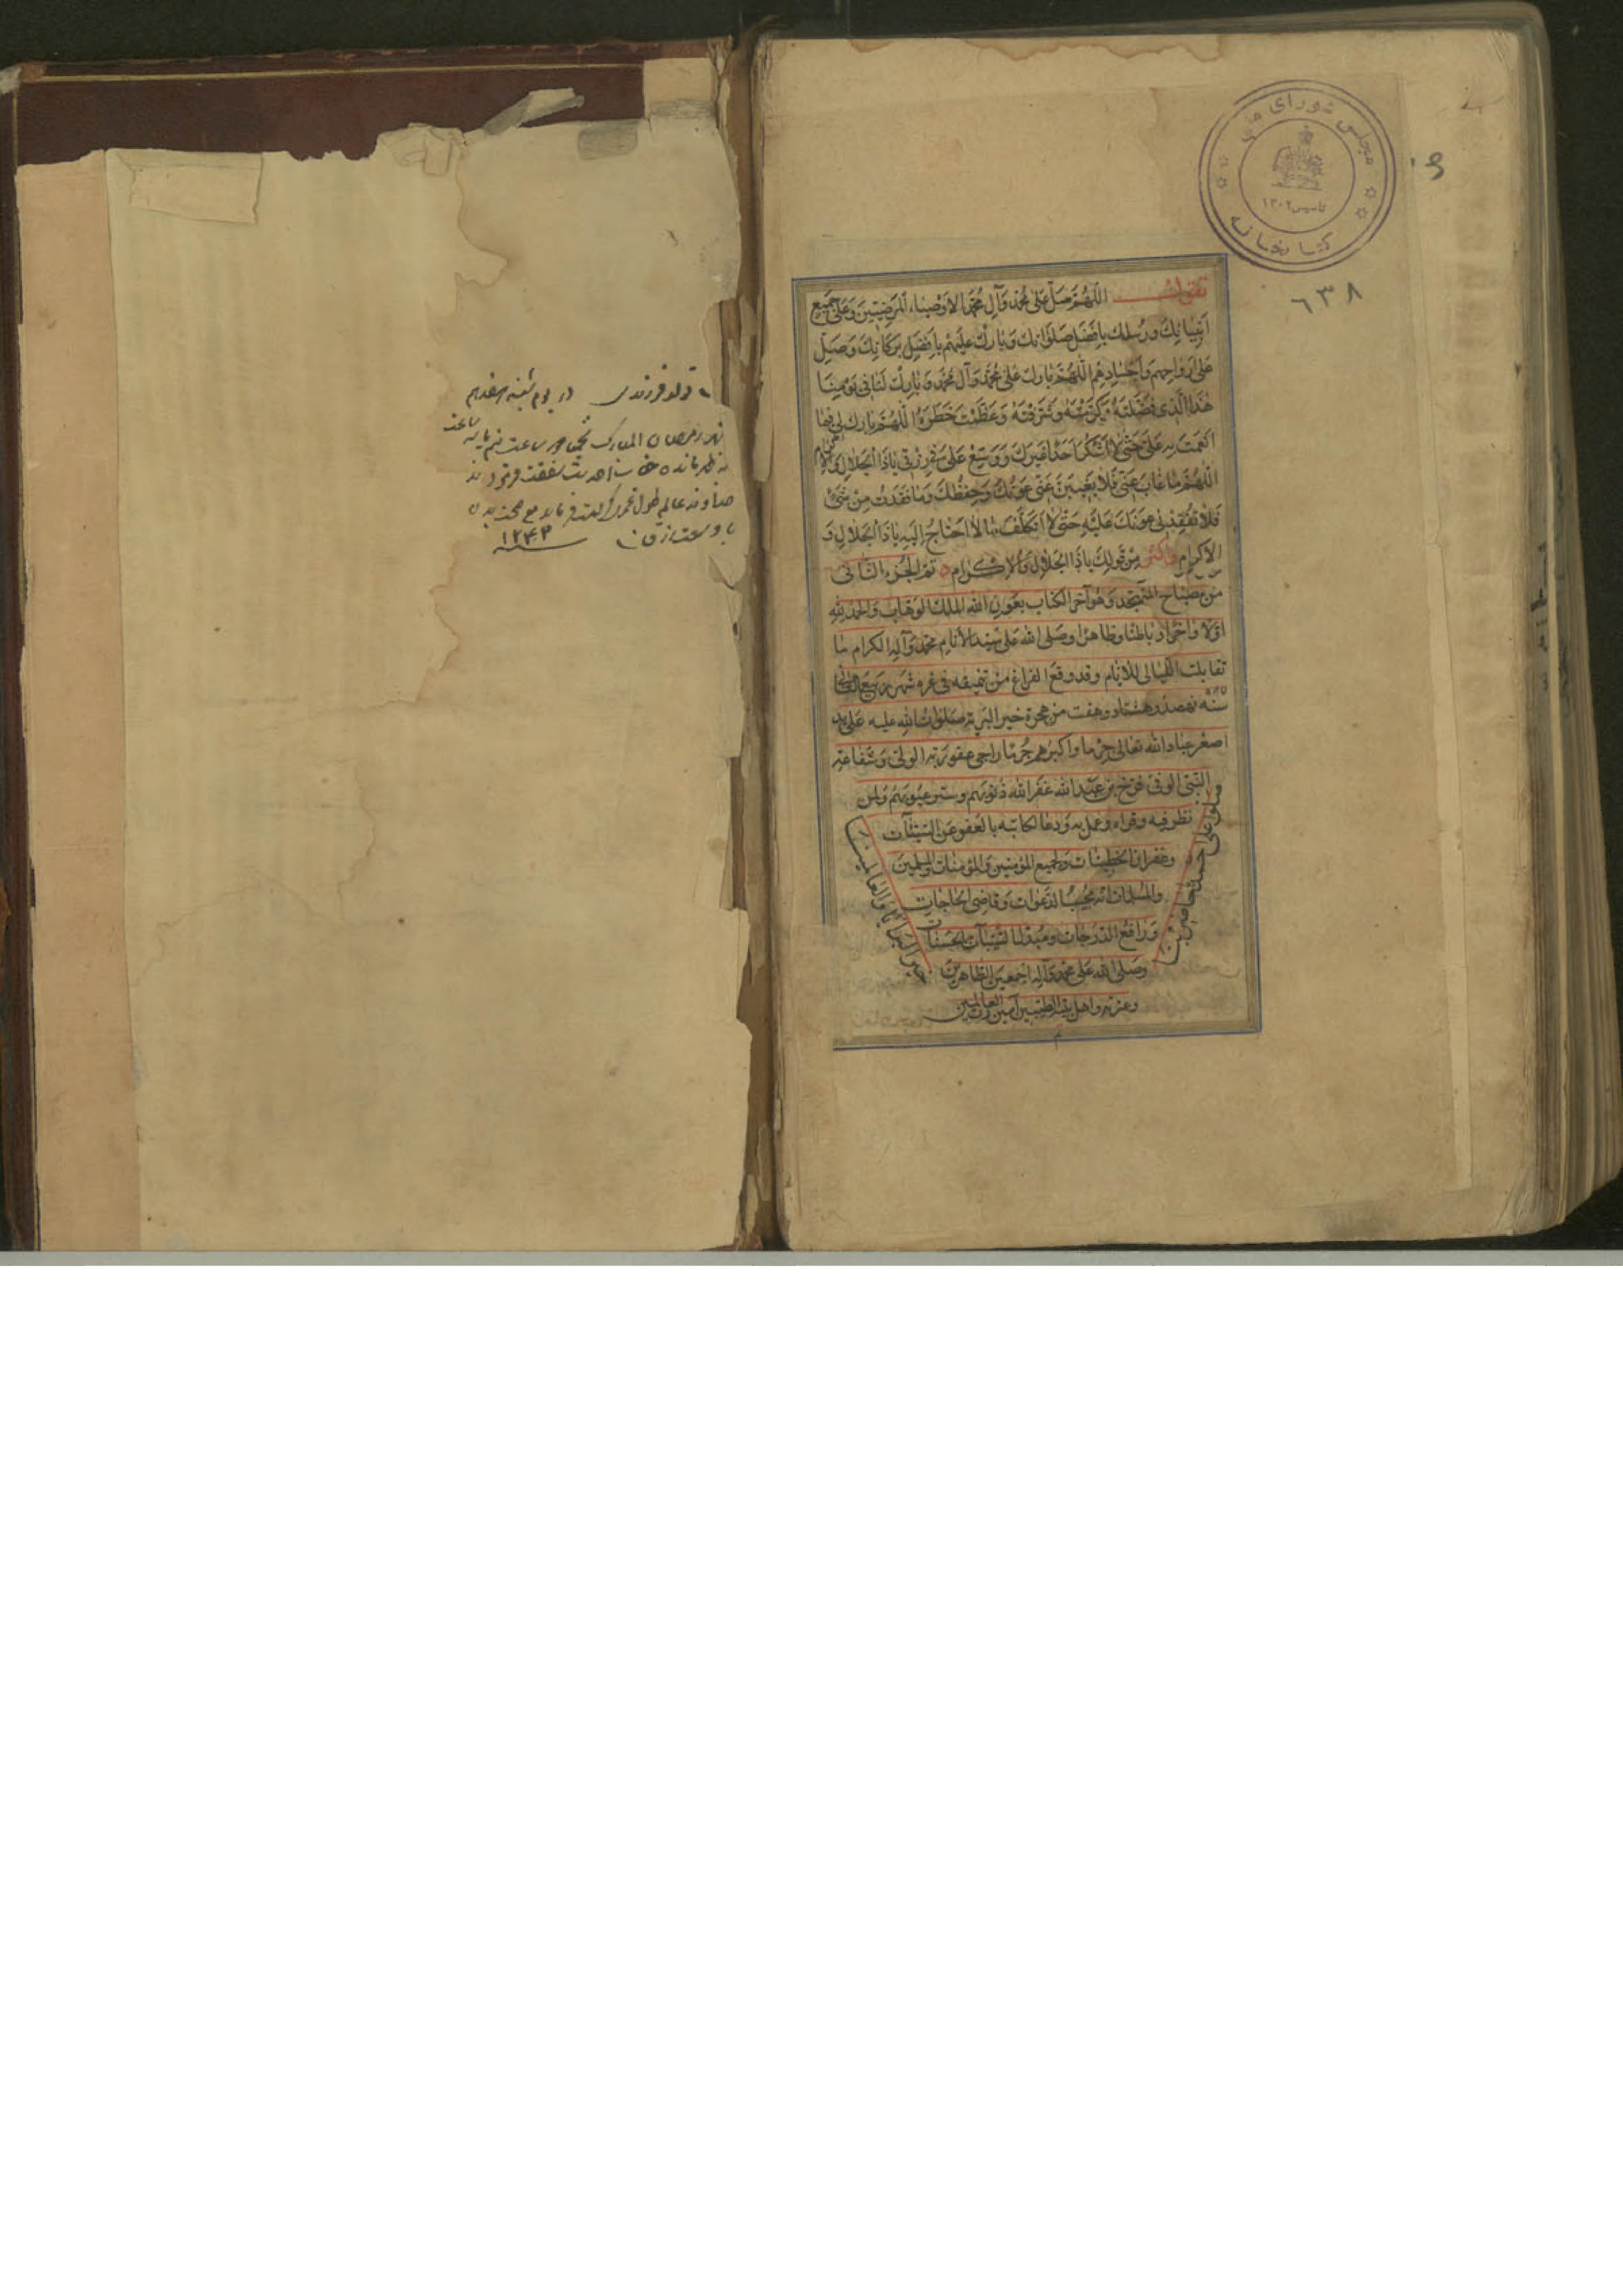 مجلس شورای ملی
تاسیس ۱۳۰۲
کتابخانه
٦٣٨
تقول اللّهم صلّ على محمد وآل محمد الاوصياء المرضيين وعلى جميع
انبيائك ورسلك بافضل صلواتك وبارك عليهم بافضل بركاتك وصل
على ارواحهم واجسادهم اللهم بارك على محمد وآل محمد وبارك لنا في يومنا
هذا الذي فضلته وكرمته وشرفته وعظمت خطره اللهم بارك لي فيما
انعمت به علي حتى لا اشكر احدا غيرك ووسع علي في رزقي ياذا الجلال والاكرام
اللهم ما غاب عني فلا يغيبن عني عونك وحفظك وما فقدت من شئ
فلا تفقدني عونك عليه حتى لا اتكلف ما لا احتاج اليه ياذا الجلال و
الاكرام واكثر من قولك ياذا الجلال والاكرام تم الجزء الثاني
من مصباح المتهجد وهو آخر الكتاب بعون الله الملك الوهاب والحمد لله
اولا وآخرا وباطنا وظاهرا وصلى الله على سيد الانام محمد وآله الكرام ما
تقابلت الليالي للايام وقد وقع الفراغ من تنميقه في غره شهر ربيع
سنه نهصد وهشتاد وهفت من هجرة خير البرية صلوات الله عليه على يد
اصغر عباد الله تعالى جرما واكبرهم جرما راجي عفو ربه الولي وشفاعة
النبي الوفي فرخ بن عبد الله غفر الله ذنوبهم وستر عيوبهم ولمن
نظر فيه وقراه وعمل به ودعا لكاتبه بالعفو عن السيئات
وغفران الخطيئات ولجميع المؤمنين والمؤمنات والمسلمين
والمسلمات انه مجيب الدعوات وقاضي الحاجات
ورافع الدرجات ومبدل السيئات بالحسنات
وصلى الله على محمد وآله اجمعين الطاهرين
وعترته واهل بيته الطيبين آمين رب العالمين
تولد فرزندی در یوم شنبه هفدهم
شهر رمضان المبارک
بظهر مانده
خداوند عالم طول عمر کرامت فرماید مع صحت بدن
با وسعت رزق
سنه ۱۲۴۳